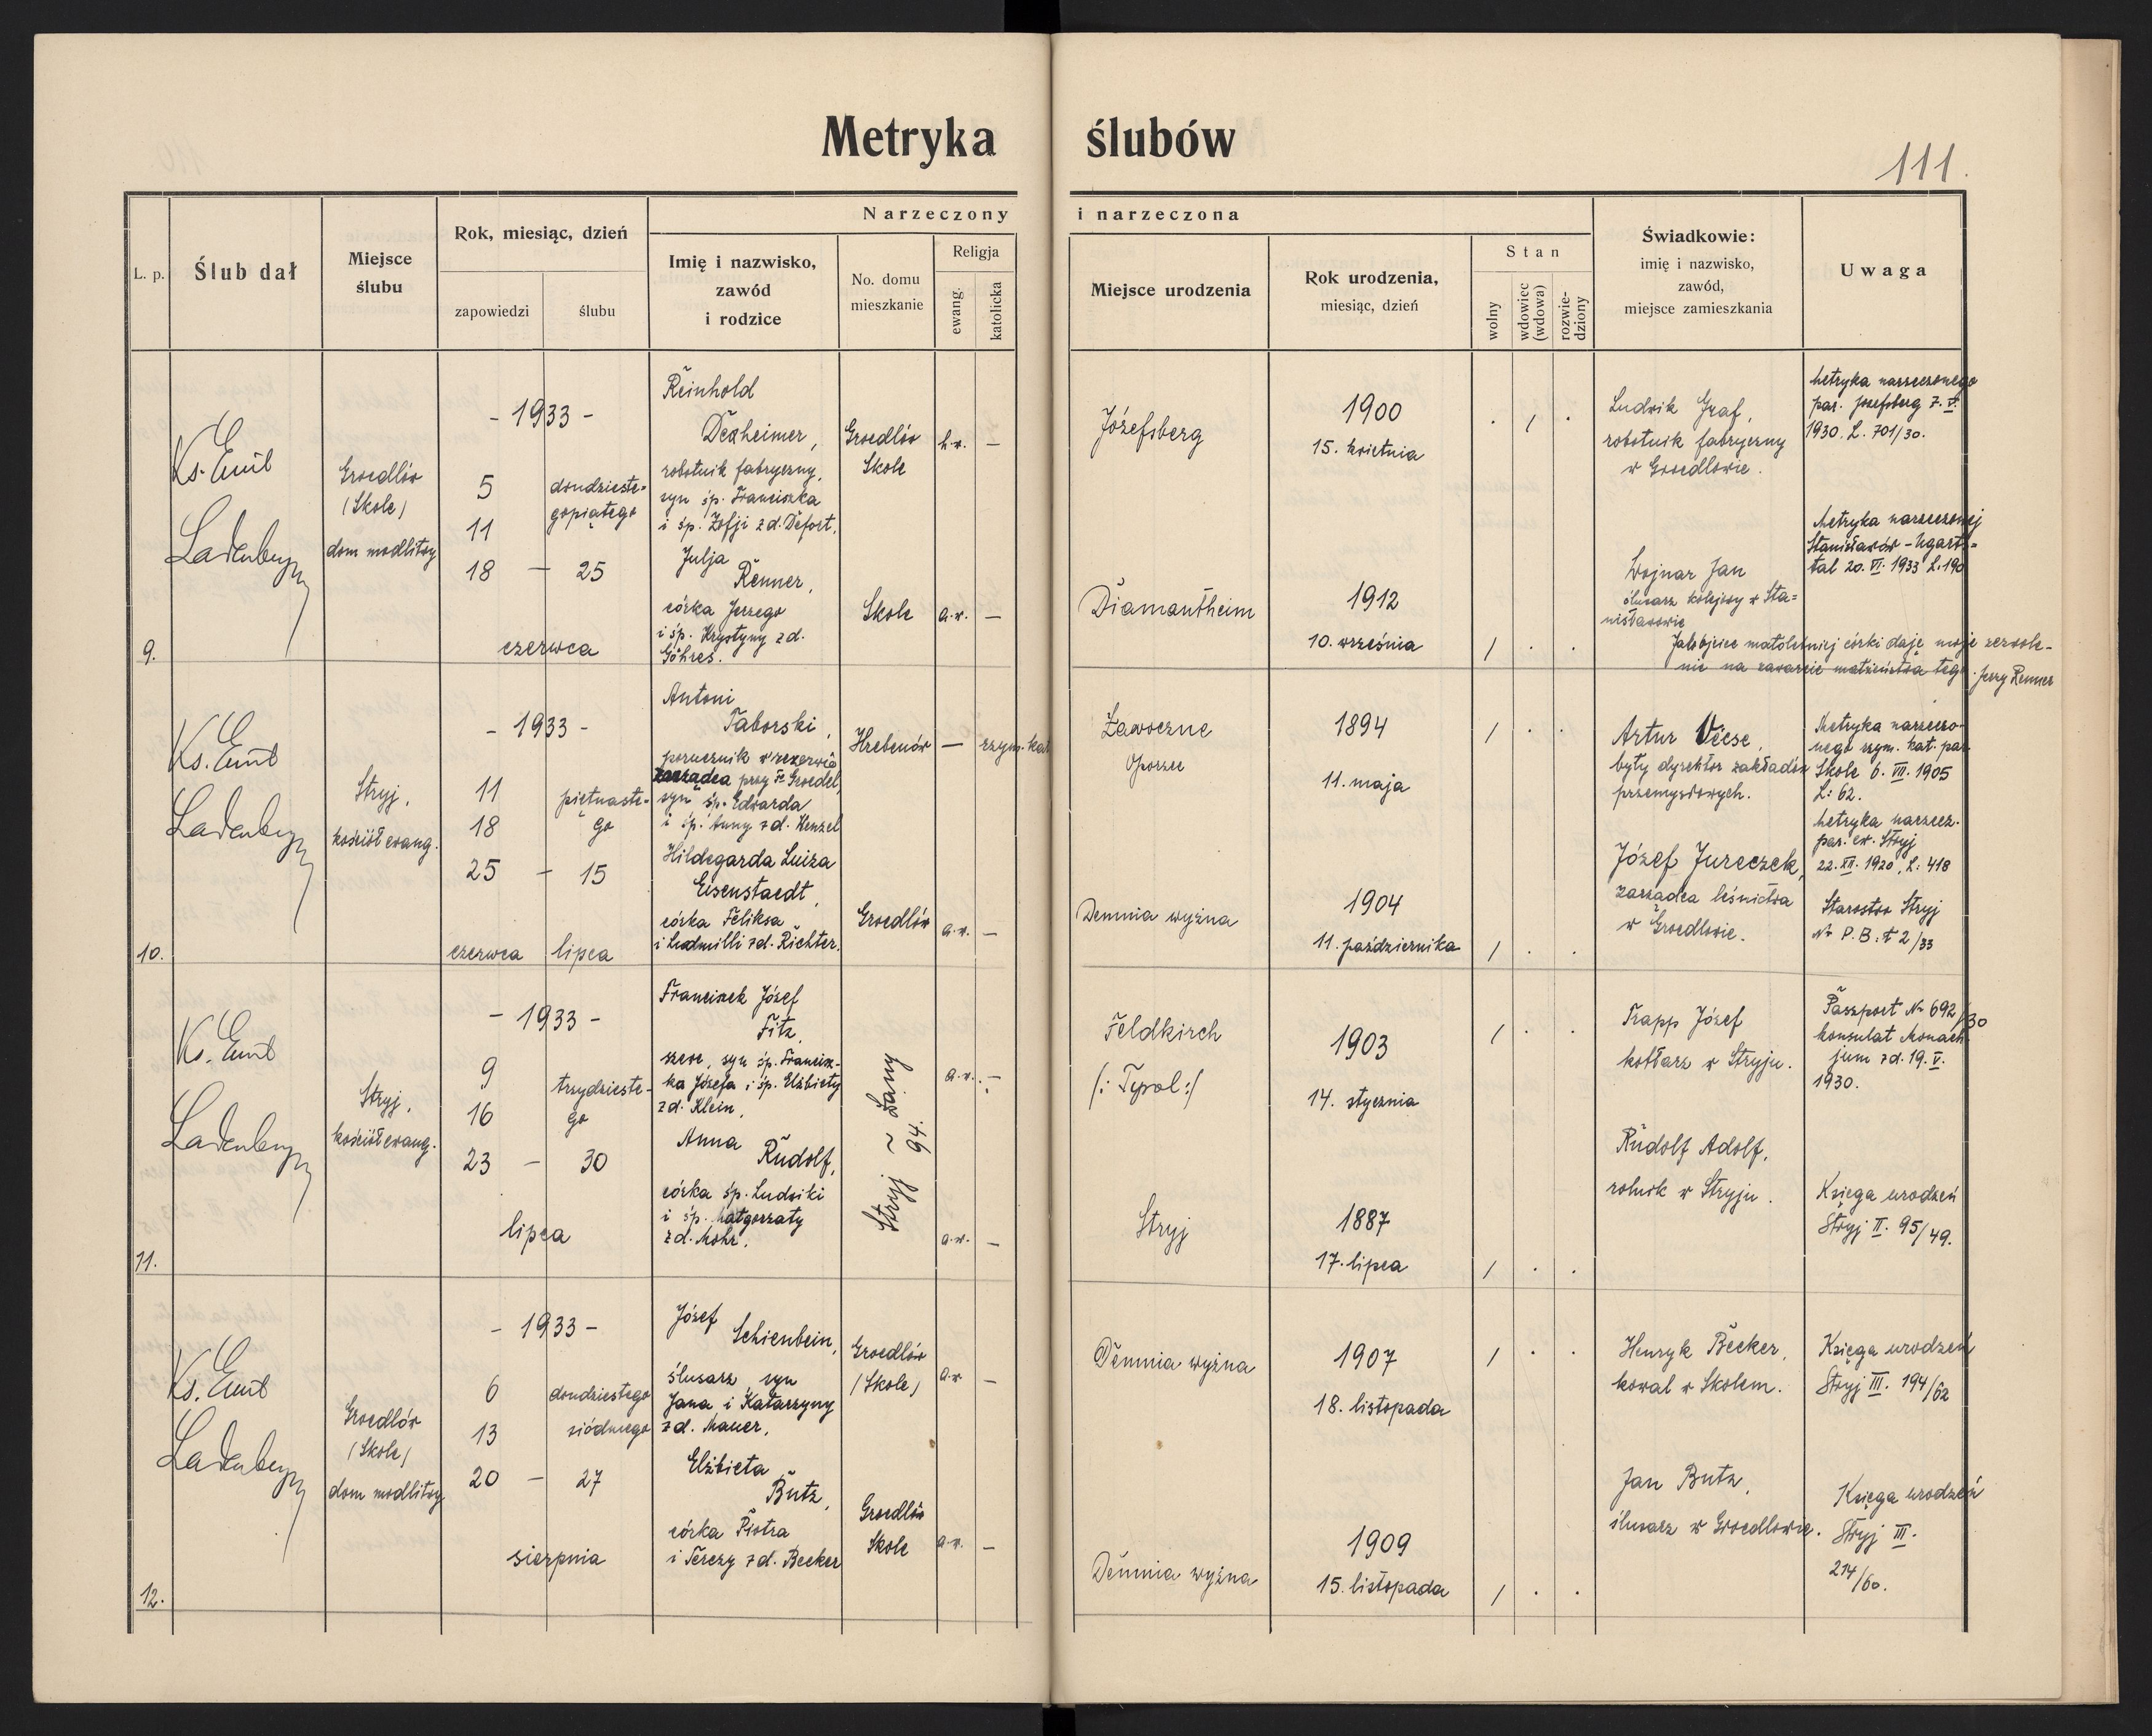 Metryka ślubów
111.
Narzeczony i narzeczona
L. p.
Ślub dał
Miejsce
ślubu
Rok, miesiąc, dzień
zapowiedzi
ślubu
Imię i nazwisko,
zawód
i rodzice
No. domu
mieszkanie
Religja
ewang.
katolicka
Miejsce urodzenia
Rok urodzenia,
miesiąc, dzień
Stan
wolny
wdowiec
(wdowa)
rozwie-
dziony
Świadkowie:
imię i nazwisko,
zawód,
miejsce zamieszkania
Uwaga
9.
Ks. Emil
Ladenberger
Groedlów
(Skole)
dom modlitwy
- 1933 -
5
11
18 — 25
dwudzieste-
gopiątego
czerwca
Reinhold
Dexheimer,
robotnik fabryczny,
syn śp. Franciszka
i śp. Zofji z d. Defort.
Groedlów
Skole
h.w. —
Józefsberg
1900
15. kwietnia
. / .
Ludwik Graf,
robotnik fabryczny
w Groedlowie.
Metryka narzeczonego
par. Josefsberg 7. V.
1930. L. 701/30.
Julja
Renner,
córka Jerzego
i śp. Krystyny z d.
Göhres.
Skole
a.w. —
Diamantheim
1912
10. września
/ . .
Wojnar Jan
ślusarz kolejowy w Sta=
nisławowie
Metryka narzeczonej
Stanisławów - Ugarts=
tal 20. VI. 1933 L. 190
Jako ojciec małoletniej córki daję moje zezwole-
nie na zawarcie małżeństwa tego. Jerzy Renner
10.
Ks. Emil
Ladenberger
Stryj,
kościół ewang.
- 1933 -
11
18
25 — 15
piętnaste-
go
czerwca
lipca
Antoni
Taborski,
porucznik w rezerwie
zarządca przy Fe Groedel,
syn śp. Edwarda
i śp. Anny z d. Wenzel
Hrebenów
— rzym. kat
Ławoczne
Oporzec
1894
11. maja
/ . .
Artur Veese,
były dyrektor zakładów
przemysłowych.
Metryka narzeczo-
nego rzym. kat. par.
Skole 6. VII. 1905
L: 62.
Hildegarda Luiza
Eisenstaedt,
córka Feliksa
i Ludmilli z d. Richter.
Groedlów
a.w. —
Demnia wyżna
1904
11. października
/ . .
Józef Jureczek,
zarządca leśnictwa
w Groedlowie.
Metryka narzecz.
par. ew. Stryj
22. XII. 1920, L: 418
Starostwo Stryj
Nr P. B. t 2/33
11.
Ks. Emil
Ladenberger
Stryj,
kościół ewang.
- 1933 -
9
16
23 — 30
trzydzieste-
go
lipca
Franciszek Józef
Fitz,
szewc, syn śp. Francisz-
ka Józefa i śp. Elżbiety
z d. Klein.
Stryj ~ Łany
94.
a.w. —
Feldkirch
(: Tyrol :)
1903
14. stycznia
/ . .
Trapp Józef
kotlarz w Stryju.
Paszport Nr 692/30
konsulat Monach-
jum z d. 19. V.
1930.
Anna
Rudolf,
córka śp. Ludwiki
i śp. Małgorzaty
z d. Mohr.
a.w. —
Stryj
1887
17. lipca
/ . .
Rudolf Adolf,
rolnik w Stryju.
Księga urodzeń
Stryj II. 95/49.
12.
Ks. Emil
Ladenberger
Groedlów
(Skole)
dom modlitwy
- 1933 -
6
13
20 — 27
dwudziestego
siódmego
sierpnia
Józef
Schienbein,
ślusarz syn
Jana i Katarzyny
z d. Mauer.
Groedlów
(Skole)
a.w —
Demnia wyżna
1907
18. listopada
/ . .
Henryk Becker,
kowal w Skolem.
Księga urodzeń
Stryj III. 194/62
Elżbieta
Butz,
córka Piotra
i Terezy z d. Becker
Groedlów
Skole
a.w. —
Demnia wyżna
1909
15. listopada
/ . .
Jan Butz,
ślusarz w Groedlowie.
Księga urodzeń
Stryj III.
214/60.